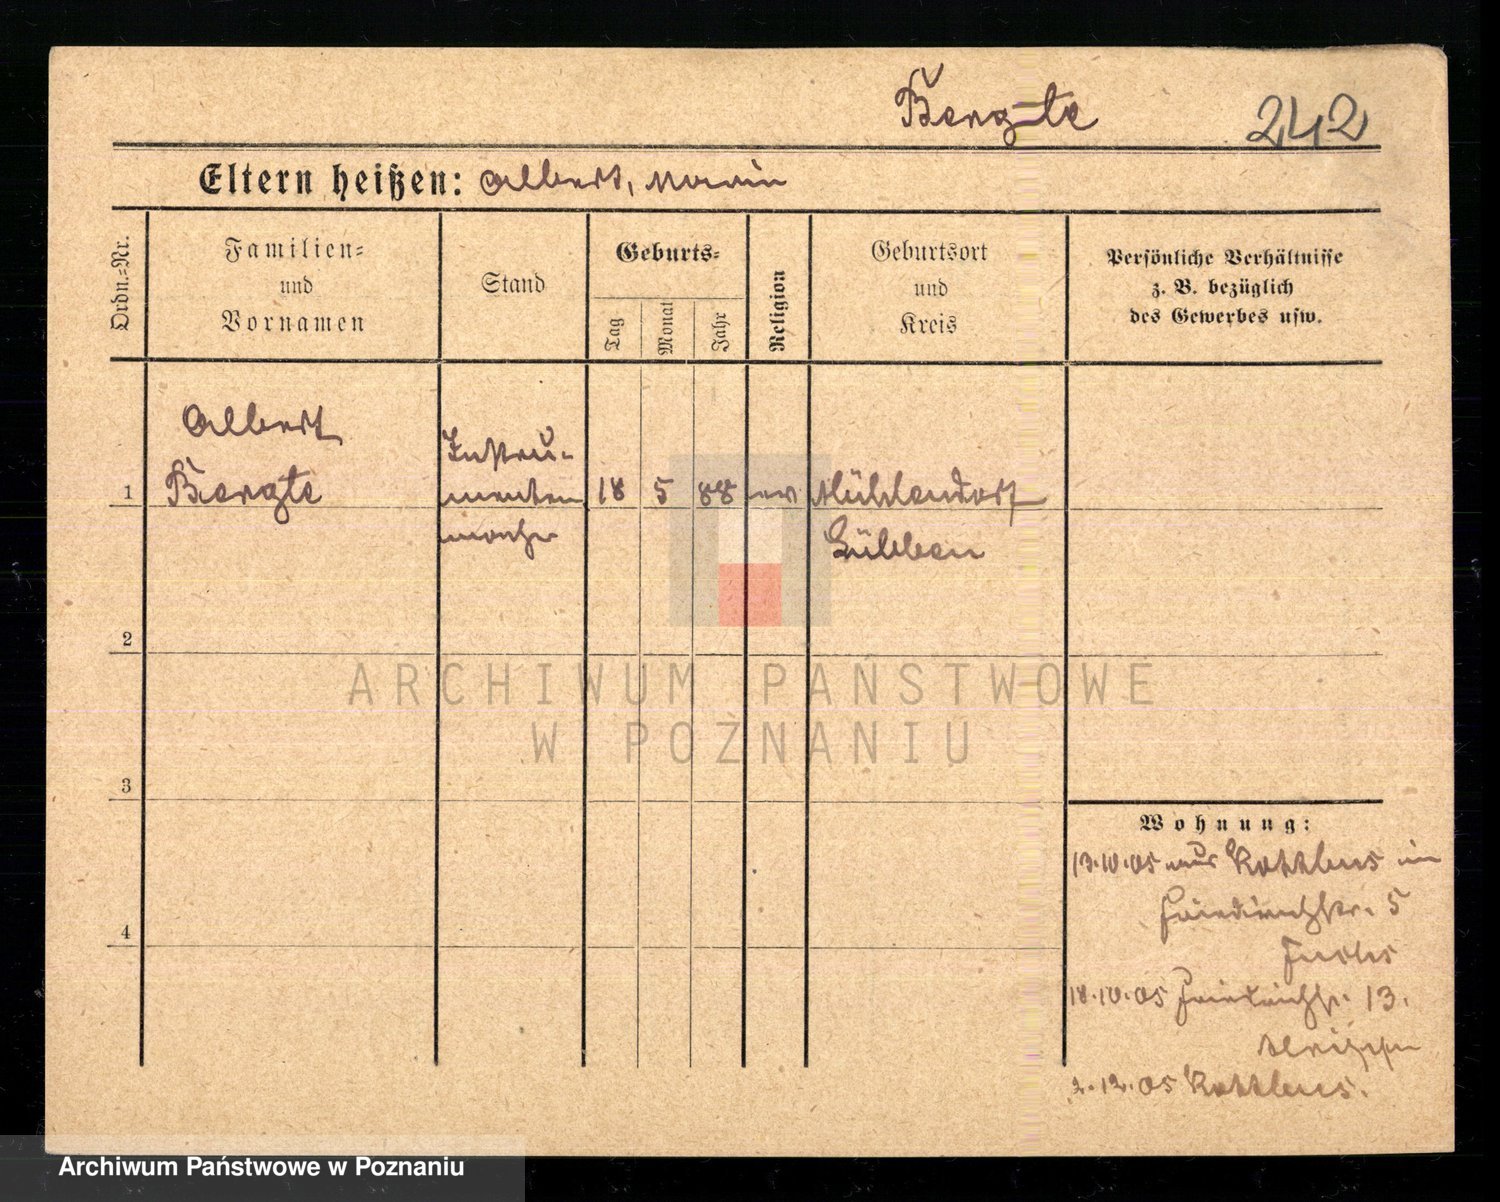 Bergte 242
Eltern heißen: Albert, Marie
Ordn.-Nr.
Familien-
und
Vornamen
Stand
Geburts-
Tag
Monat
Jahr
Religion
Geburtsort
und
Kreis
Persönliche Verhältnisse
z. B. bezüglich
des Gewerbes usw.
Albert
1 Bergte
Instru-
menten
macher
18 5 88 ev Mühlendorf
Lübben
2
3
4
ARCHIWUM PAŃSTWOWE
W POZNANIU
Wohnung:
13.10.05 aus Kottbus in
Friedrichstr. 5
Fuchs
18.10.05 Friedrichstr. 13.
2.12.05 Kottbus.
Archiwum Państwowe w Poznaniu